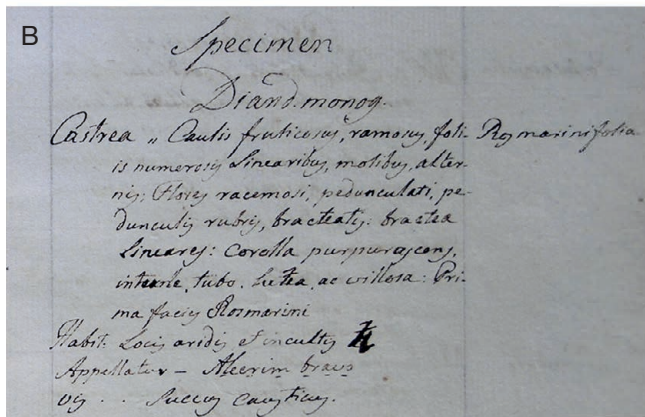 B
Specimen
Diand. monog.
Castrea „ Caulis fruticosus, ramosus, foli- Rosmarinifolia
is numerosis Linearibus, mollibus, alter-
nis; Flores racemosi, pedunculati, pe-
dunculis rubris, bracteatis: bractea
Lineares: Corolla purpurascens,
interne, tubo. Lutea, ac villosa: Pri-
ma facies Rosmarini
Habit. Locis aridis et incultis
Appellatur – Alecrim bravo
Vis . . Succus causticus.